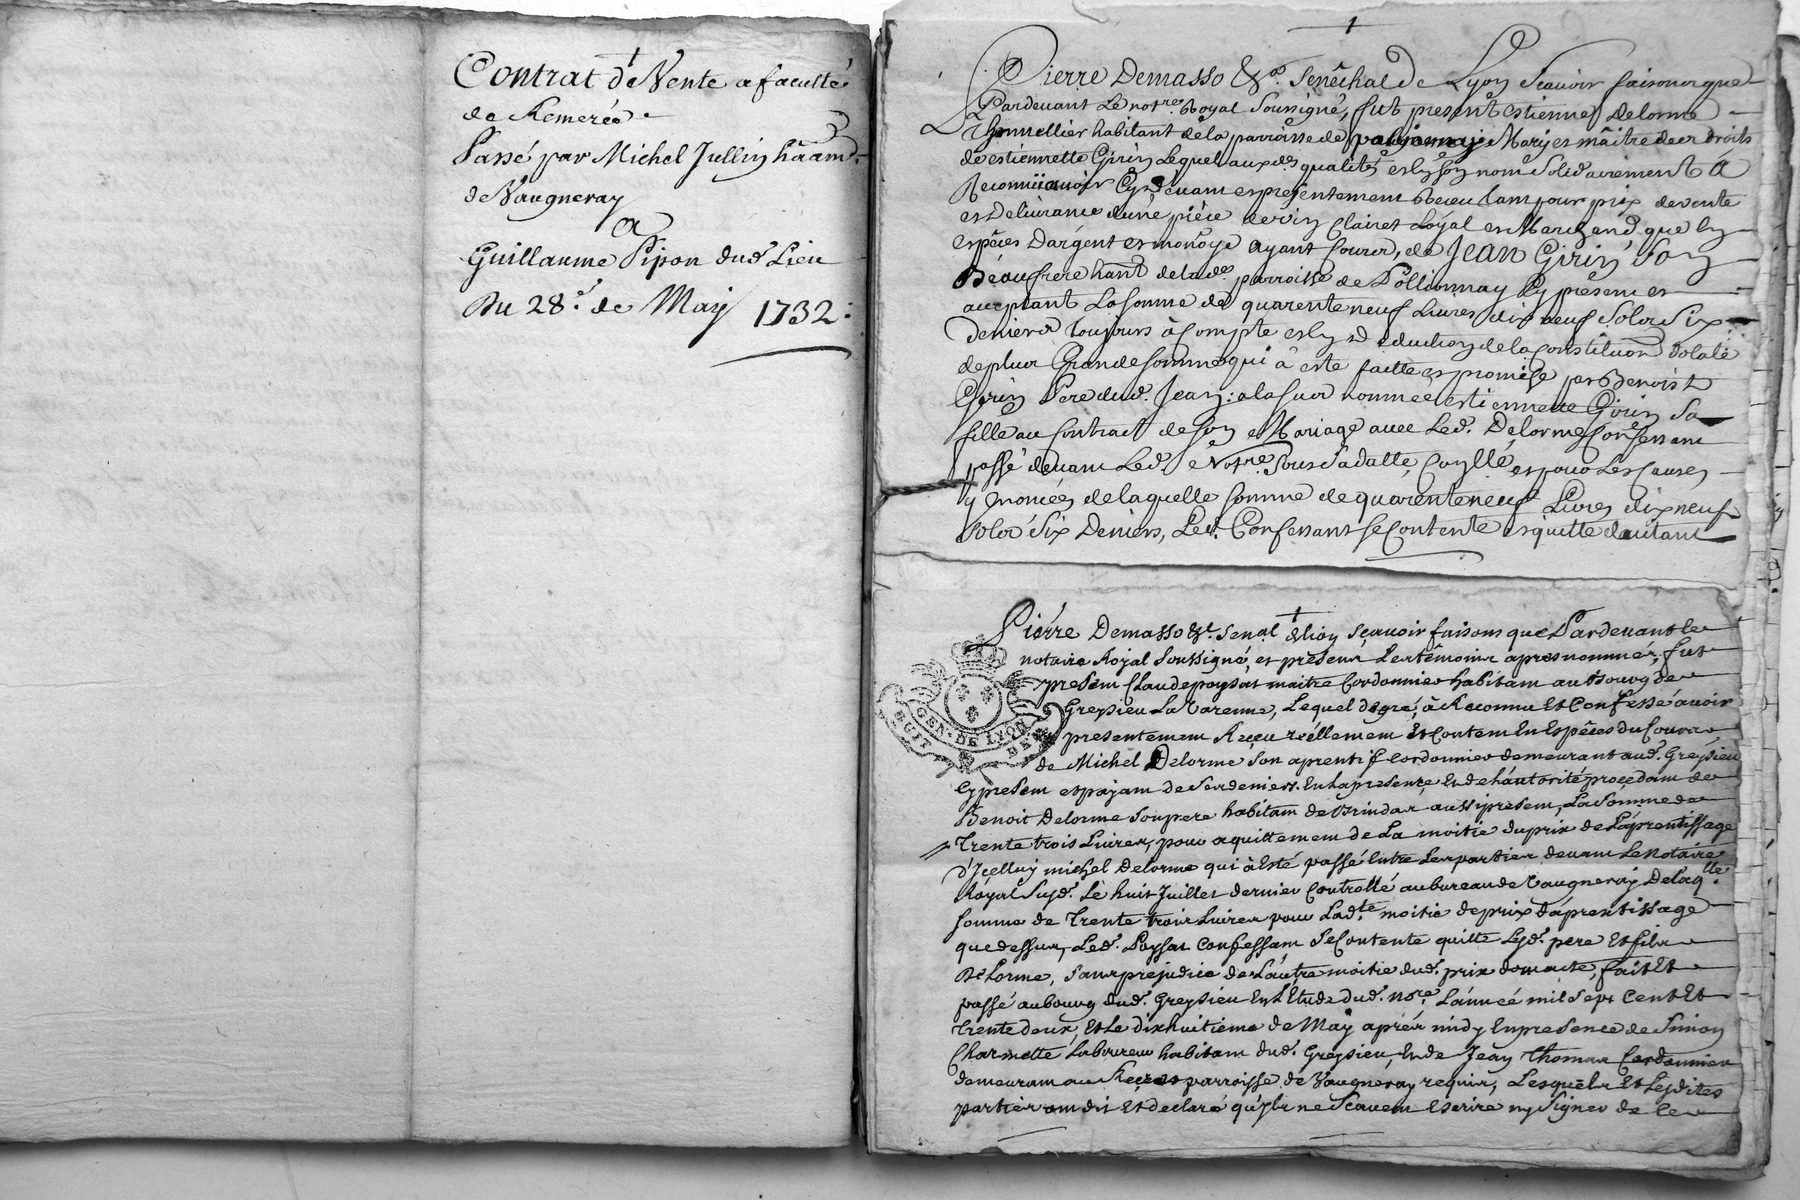 Contrat de Vente a faculté
de Remeré
Passé par Michel Jullin hãam
de Vaugneray
A
Guillaume Pipon dud. Lieu
Du 28e. de Maij 1732:
Pierre Demasso &a. Senêchal de Lyon Scavoir faisons que
Pardevant le notre. Royal Soussigné, fut present estienne Delorme
Thonnellier habitant de la parroisse de pollionnaij Mary et maître des droits
de estiennette Girin Lequel aux ds. qualités et en son nom Solidairement A
Reconnü avoir Cy devant et presentement Receu tant pour prix de vente
et Délivrance d'une pièce de vin Clairet Loyal et Marchand que en
espêces D'argent et monoye ayant Cours, de Jean Girin Son
Béaufrere hant. de lade. parroisse de Pollionnay Cy présent et
acceptant La Somme de quarente neuf Livres dix neuf Sols Six
deniers toujours à Compte et en déduction de la Constitution Dotale
de plus Grande Somme qui à esté faitte et promise par Benoist
Girin Pere dud. Jean: a la Sus nommée estiennette Girin Sa
fille au Contract de Son Mariage avec Led. Délorme Confessant
passé devant Led. Notre. Sous Sa datte, Conttrollé, et pour Les Causes
y énoncées de laquelle Somme de quarente neuf Livres dix neuf
Sols Six Deniers, Led. Confessant Se Contente et quitte d'autant
Pierre Demasso &c. Senal. de Lion Sçavoir faisons que Pardevant le
notaire Royal Soussigné, et présens Les têmoins apres nommes, fut
présent Claude poysat maitre Cordonnier habitant au Bourg de
Greysieu La Varenne, Lequel de gré, à Reconnu Et Confessé avoir
présentement Reçeu réellement Et Contant En Espêces du Cours
de Michel Delorme Son aprentif Cordonnier demeurant aud. Greysieu
Cy présent et payant de Ses deniers. En la presence Et de l'autorité procédant de
Benoit Delorme Son pere habitant de Brindas aussi présent, La Sômme de
Trente trois Livres, pour aquittement de La moitié du prix de L'áprentissage
d'Jcelluy michel Delorme qui à Esté passé Entre Les parties devant Le Notaire
Royal Susd. Le huit Juillet dernier Controllé au bureau de Vaugneraij De laqlle.
Somme de Trente trois Livres pour Ladte. moitié de prix d'áprentissage
que dessus, Led. Poysat Confessant Se Contente quitte Lesd. pere Et fils
Delorme, Sans prejudice de L'autre moitié dud. prix domacte, fait Et
passé au bourg dud. Greysieu En L'Etude dud. nore. L'année mil Sept Cent Et
Trente deux, Et Le dixhuitieme de May aprés midy En presence de Simon
Charmette Laboureur habitant dud. Greysieu, Et de Jean Thomas Cordonnier
demeurant au parroisse de Vaugneray requis, Lesquels Et Lesdites
parties ont dit Et declaré qu'ils ne Scavent Escrire ny Signer de ce
GEN. DE LYON